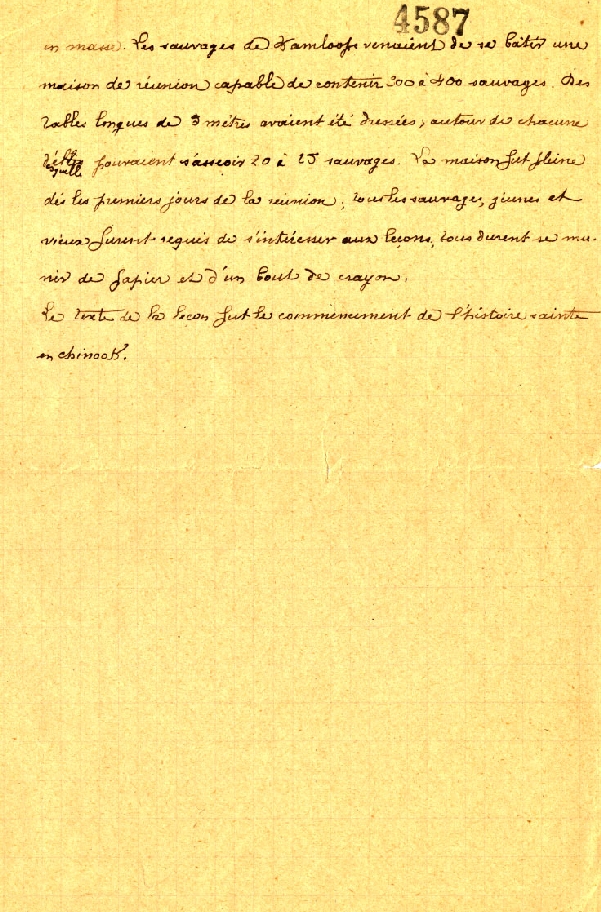 4587
en masse. Les sauvages de Kamloops venaient de se bâtir une
maison de réunion capable de contenir 300 à 400 sauvages. Des
tables longues de 3 mètres avaient été dressées, autour de chacune
desquelles pouvaient s'asseoir 20 à 25 sauvages. La maison fut pleine
dès les premiers jours de la réunion, tous les sauvages, jeunes et
vieux furent requis de s'intéresser aux leçons, tous durent se mu-
nir de papier et d'un bout de crayon.
Le texte de la leçon fut le commencement de l'histoire sainte
en chinook.